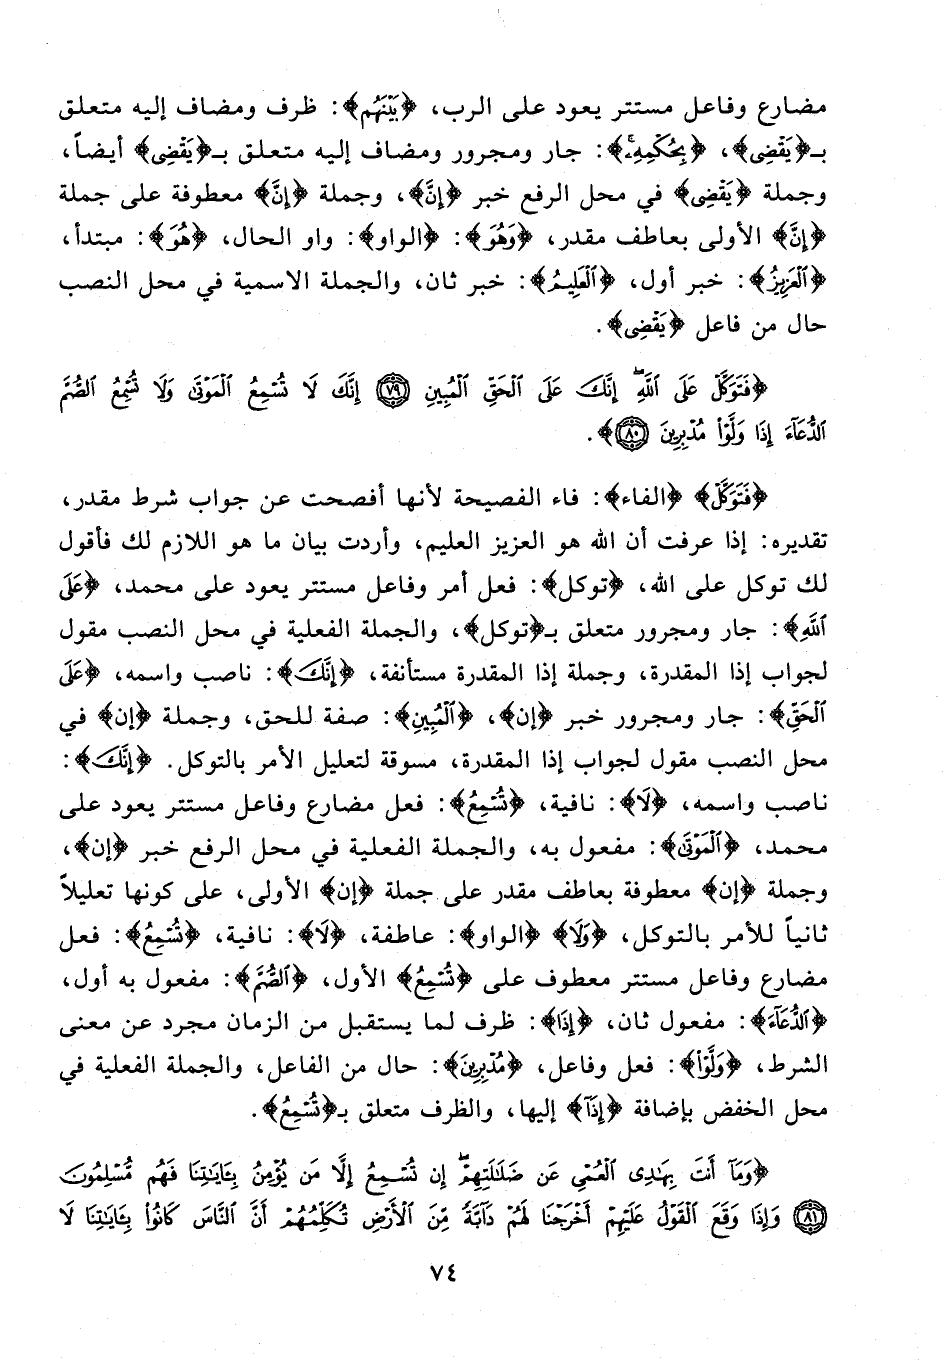 مضارع وفاعل مستتر يعود على الرب، ﴿بَيْنَهُم﴾: ظرف ومضاف إليه متعلق
بـ﴿يَقْضِى﴾، ﴿بِحُكْمِهِۦ﴾: جار ومجرور ومضاف إليه متعلق بـ﴿يَقْضِى﴾ أيضاً،
وجملة ﴿يَقْضِى﴾ في محل الرفع خبر ﴿إِنَّ﴾، وجملة ﴿إِنَّ﴾ معطوفة على جملة
﴿إِنَّ﴾ الأولى بعاطف مقدر، ﴿وَهُوَ﴾: ﴿الواو﴾: واو الحال، ﴿هُوَ﴾: مبتدأ،
﴿ٱلْعَزِيزُ﴾: خبر أول، ﴿ٱلْعَلِيمُ﴾: خبر ثان، والجملة الاسمية في محل النصب
حال من فاعل ﴿يَقْضِى﴾.
﴿فَتَوَكَّلْ عَلَى ٱللَّهِۖ إِنَّكَ عَلَى ٱلْحَقِّ ٱلْمُبِينِ ٧٩ إِنَّكَ لَا تُسْمِعُ ٱلْمَوْتَىٰ وَلَا تُسْمِعُ ٱلصُّمَّ
ٱلدُّعَآءَ إِذَا وَلَّوْا۟ مُدْبِرِينَ ٨٠﴾.
﴿فَتَوَكَّلْ﴾ ﴿الفاء﴾: فاء الفصيحة لأنها أفصحت عن جواب شرط مقدر،
تقديره: إذا عرفت أن الله هو العزيز العليم، وأردت بيان ما هو اللازم لك فأقول
لك توكل على الله، ﴿توكل﴾: فعل أمر وفاعل مستتر يعود على محمد، ﴿عَلَى
ٱللَّهِ﴾: جار ومجرور متعلق بـ﴿توكل﴾، والجملة الفعلية في محل النصب مقول
لجواب إذا المقدرة، وجملة إذا المقدرة مستأنفة، ﴿إِنَّكَ﴾: ناصب واسمه، ﴿عَلَى
ٱلْحَقِّ﴾: جار ومجرور خبر ﴿إن﴾، ﴿ٱلْمُبِينِ﴾: صفة للحق، وجملة ﴿إن﴾ في
محل النصب مقول لجواب إذا المقدرة، مسوقة لتعليل الأمر بالتوكل. ﴿إِنَّكَ﴾:
ناصب واسمه، ﴿لَا﴾: نافية، ﴿تُسْمِعُ﴾: فعل مضارع وفاعل مستتر يعود على
محمد، ﴿ٱلْمَوْتَىٰ﴾: مفعول به، والجملة الفعلية في محل الرفع خبر ﴿إن﴾،
وجملة ﴿إن﴾ معطوفة بعاطف مقدر على جملة ﴿إن﴾ الأولى، على كونها تعليلاً
ثانياً للأمر بالتوكل، ﴿وَلَا﴾ ﴿الواو﴾: عاطفة، ﴿لَا﴾: نافية، ﴿تُسْمِعُ﴾: فعل
مضارع وفاعل مستتر معطوف على ﴿تُسْمِعُ﴾ الأول، ﴿ٱلصُّمَّ﴾: مفعول به أول،
﴿ٱلدُّعَآءَ﴾: مفعول ثان، ﴿إِذَا﴾: ظرف لما يستقبل من الزمان مجرد عن معنى
الشرط، ﴿وَلَّوْا۟﴾: فعل وفاعل، ﴿مُدْبِرِينَ﴾: حال من الفاعل، والجملة الفعلية في
محل الخفض بإضافة ﴿إِذَآ﴾ إليها، والظرف متعلق بـ﴿تُسْمِعُ﴾.
﴿وَمَآ أَنتَ بِهَـٰدِى ٱلْعُمْىِ عَن ضَلَـٰلَتِهِمْۖ إِن تُسْمِعُ إِلَّا مَن يُؤْمِنُ بِـَٔايَـٰتِنَا فَهُم مُّسْلِمُونَ
٨١ وَإِذَا وَقَعَ ٱلْقَوْلُ عَلَيْهِمْ أَخْرَجْنَا لَهُمْ دَآبَّةً مِّنَ ٱلْأَرْضِ تُكَلِّمُهُمْ أَنَّ ٱلنَّاسَ كَانُوا۟ بِـَٔايَـٰتِنَا لَا
٧٤